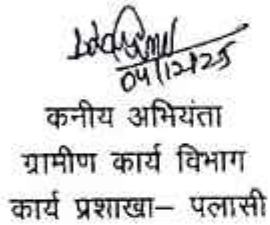 04/12/25
कनीय अभियंता
ग्रामीण कार्य विभाग
कार्य प्रशाखा– पलासी